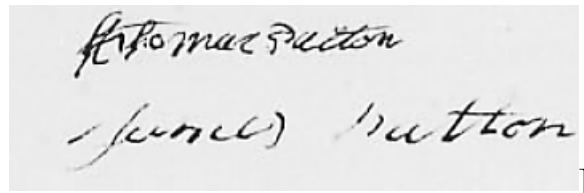 Thomas Patton
James Patton